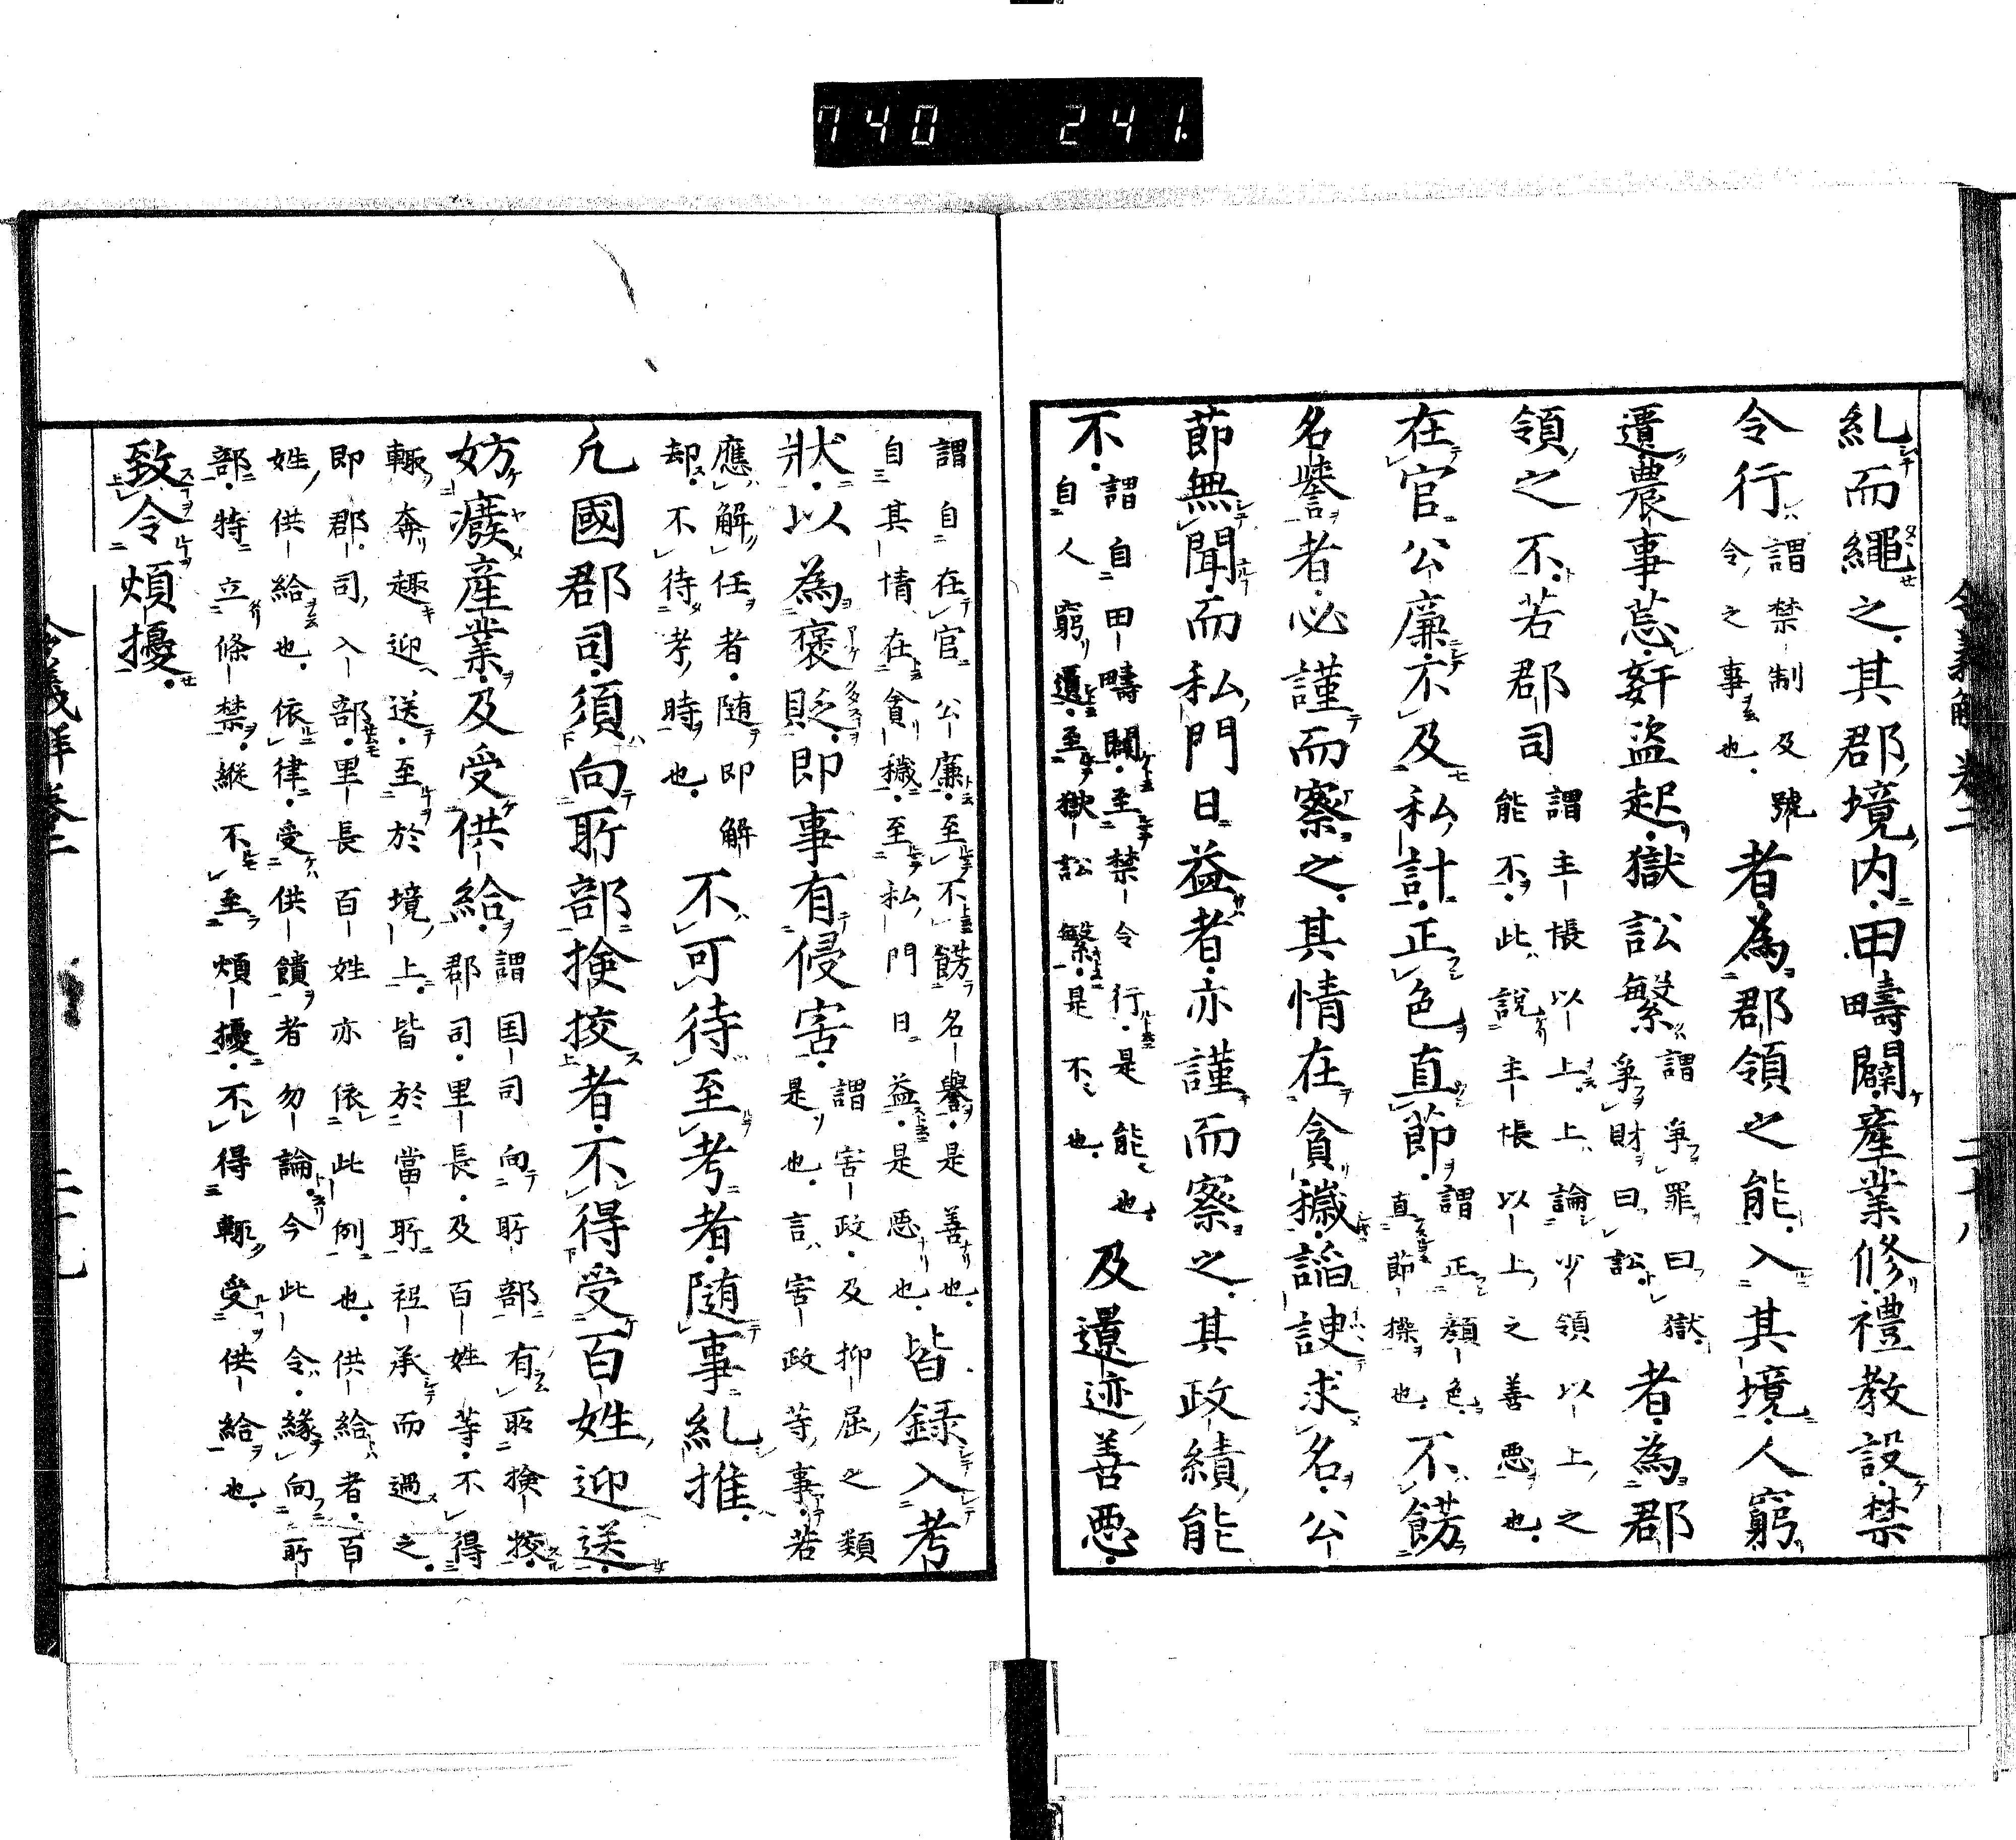 740 241.
令義解卷二 二十八
糺而繩之其郡境内田疇闢產業修禮教設禁
令行
謂禁制及號
令之事也
者為郡領之能入其境人窮
匱農事荒姧盜起獄訟繁
謂爭罪曰獄
爭財曰訟
者為郡
領之不若郡司
謂主帳以上上論少領以上之
能不此說主帳以上之善惡也
在官公廉不及私計正色直節
謂正顏色
直節操也
不餝
名譽者必謹而察之其情在貪穢諂諛求名公
節無聞而私門日益者亦謹而察之其政績能
不
謂自田疇闢至禁令行是能也
自人窮匱至獄訟繁是不也
及景迹善惡
謂自在官公廉至不餝名譽是善也
自其情在貪穢至私門日益是惡也
皆録入考
狀以為褒貶即事有侵害
謂害政及抑屈之類
是也言害政等事若
應解任者随即解
却不待考時也
不可待至考者随事糺推
凢國郡司須向所部撿挍者不得受百姓迎送
妨廢產業及受供給
謂国司向所部有所撿挍
郡司里長及百姓等不得
輙奔趣迎送至於境上皆於當所祗承而過之
即郡司入部里長百姓亦依此例也供給者百
姓供給也依律受供饋者勿論今此令緣向所
部特立條禁縱不至煩擾不得輙受供給也
致令煩擾
令義解卷二 二十九